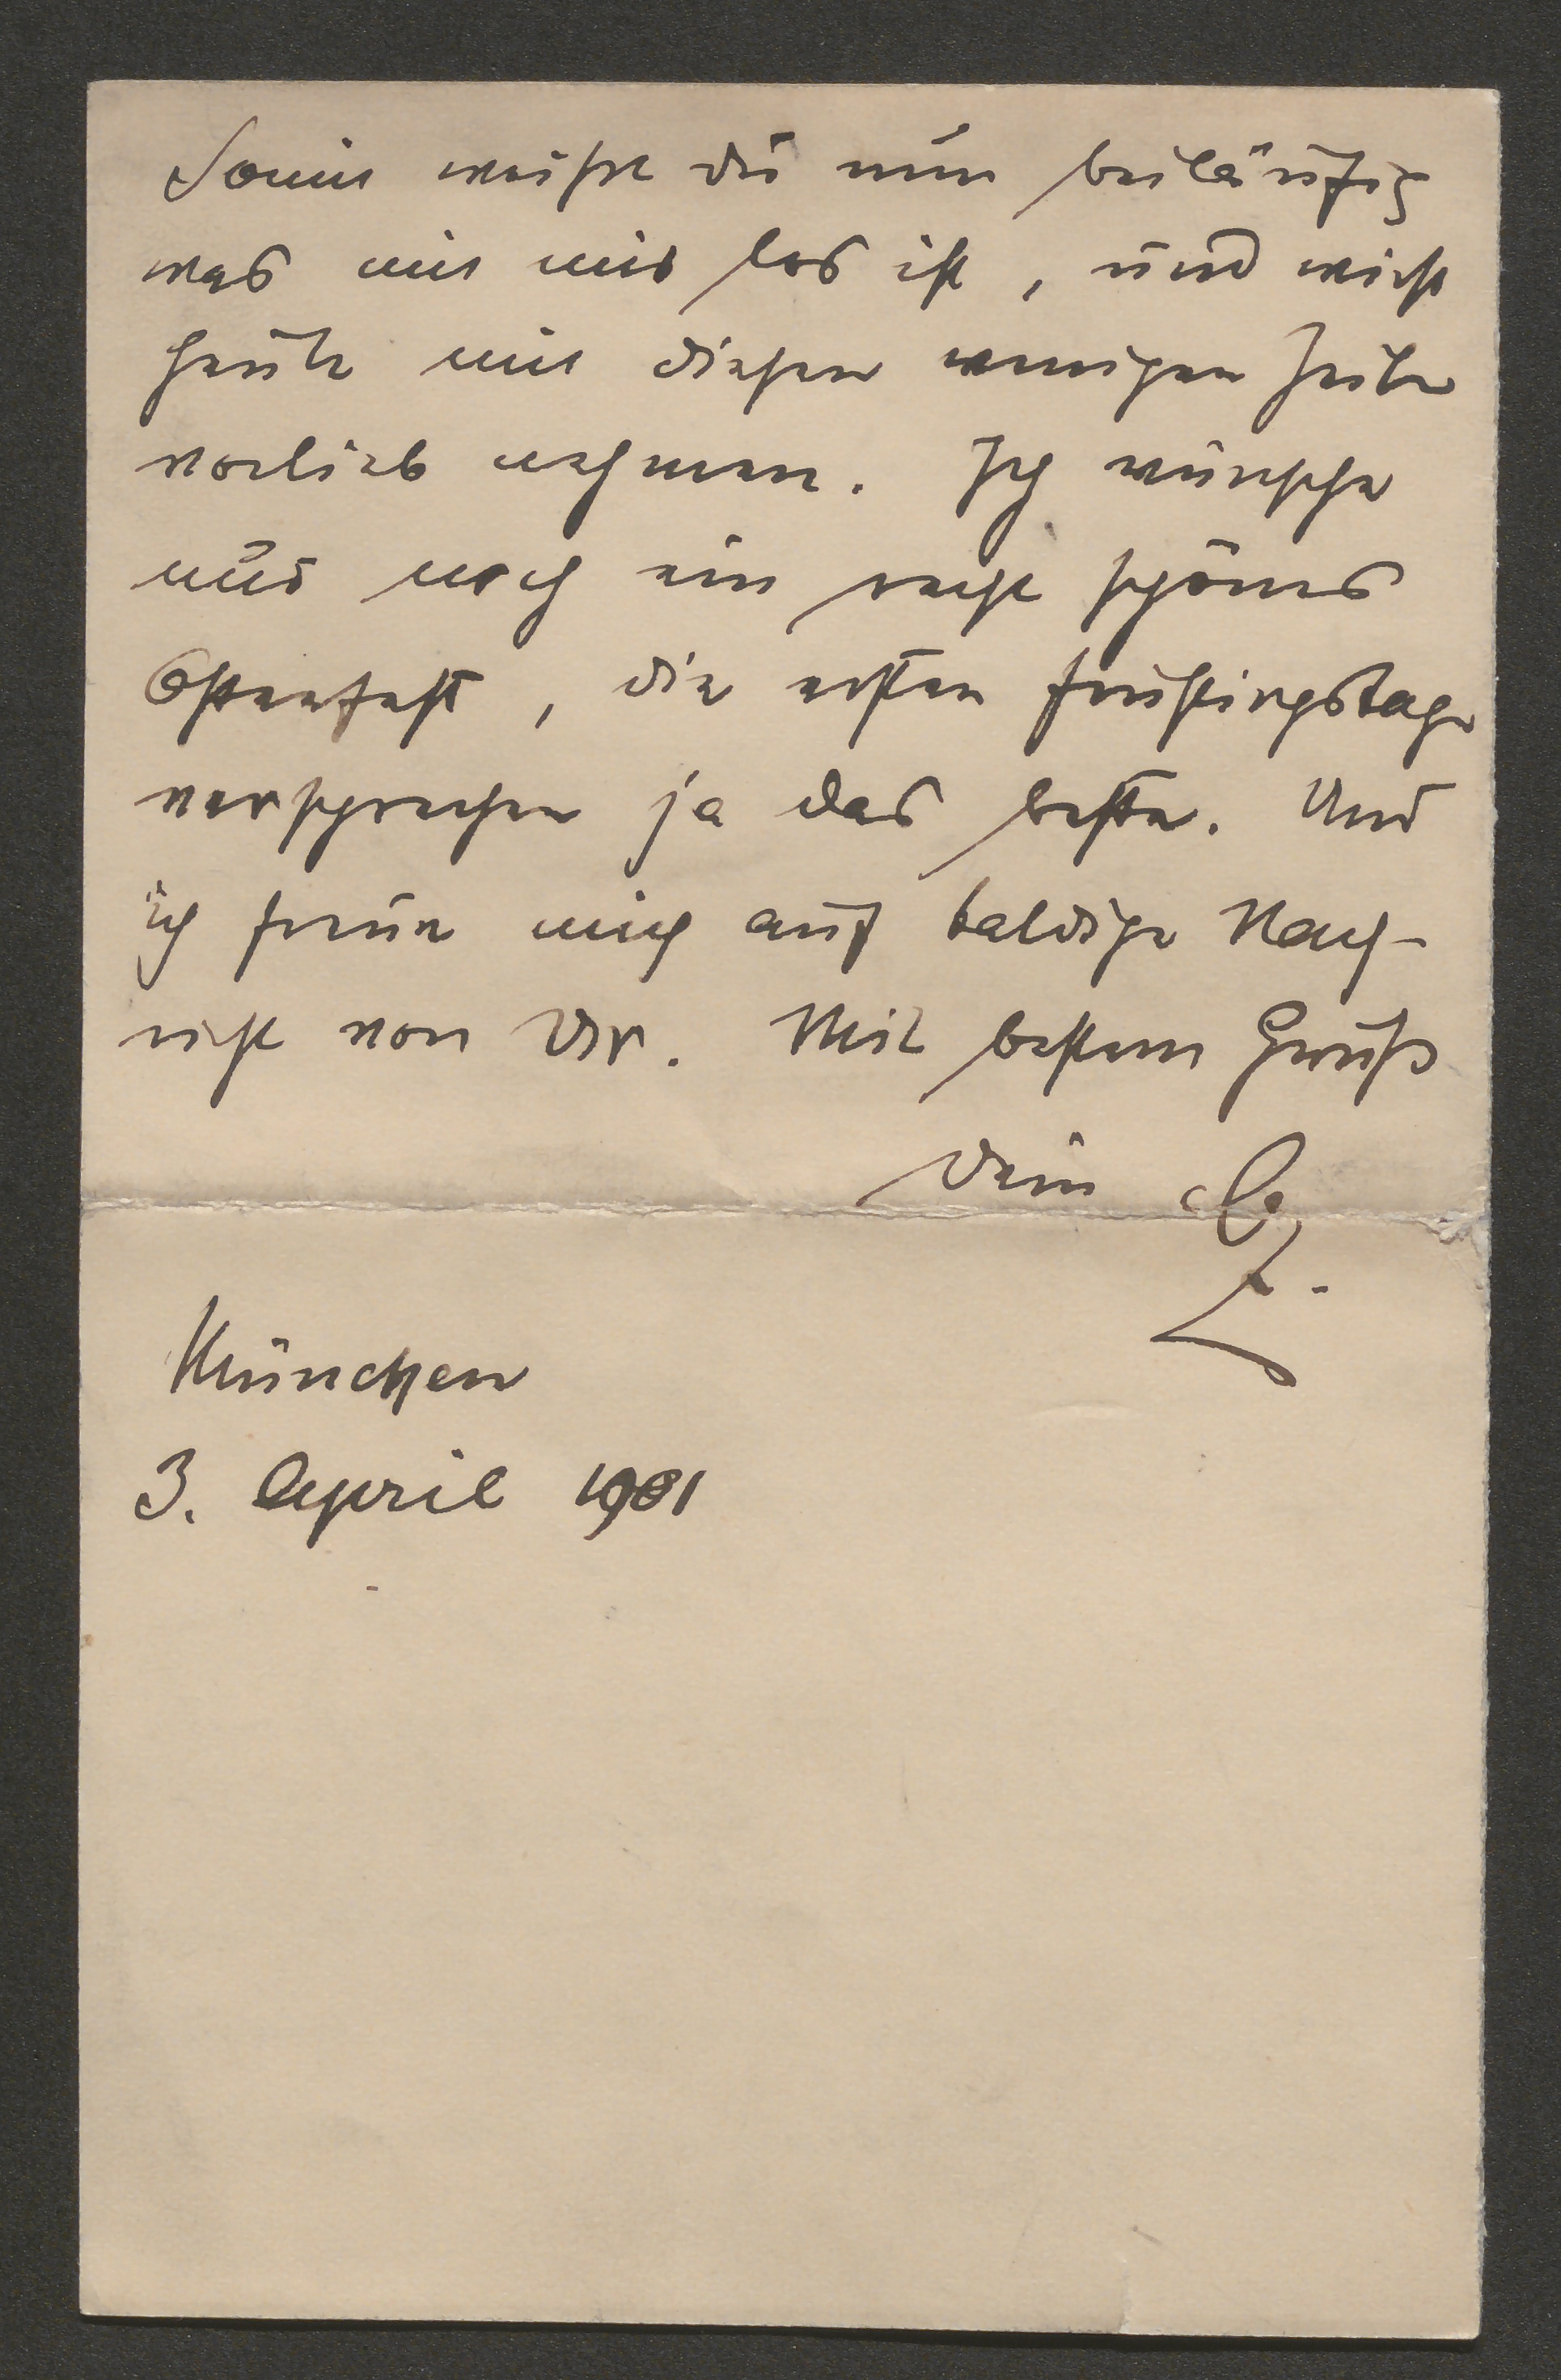 Somit weißt du nun beiläufig
was mit mir los ist, und wirst
heute mit diesen wenigen Zeilen
vorlieb nehmen. Ich wünsche
nur noch ein recht schönes
Osterfest, die ersten Frühlingstage
versprechen ja das beste. Und
ich freue mich auf baldige Nach-
richt von Dir. Mit bestem Gruß
Dein
München
3. April 1901